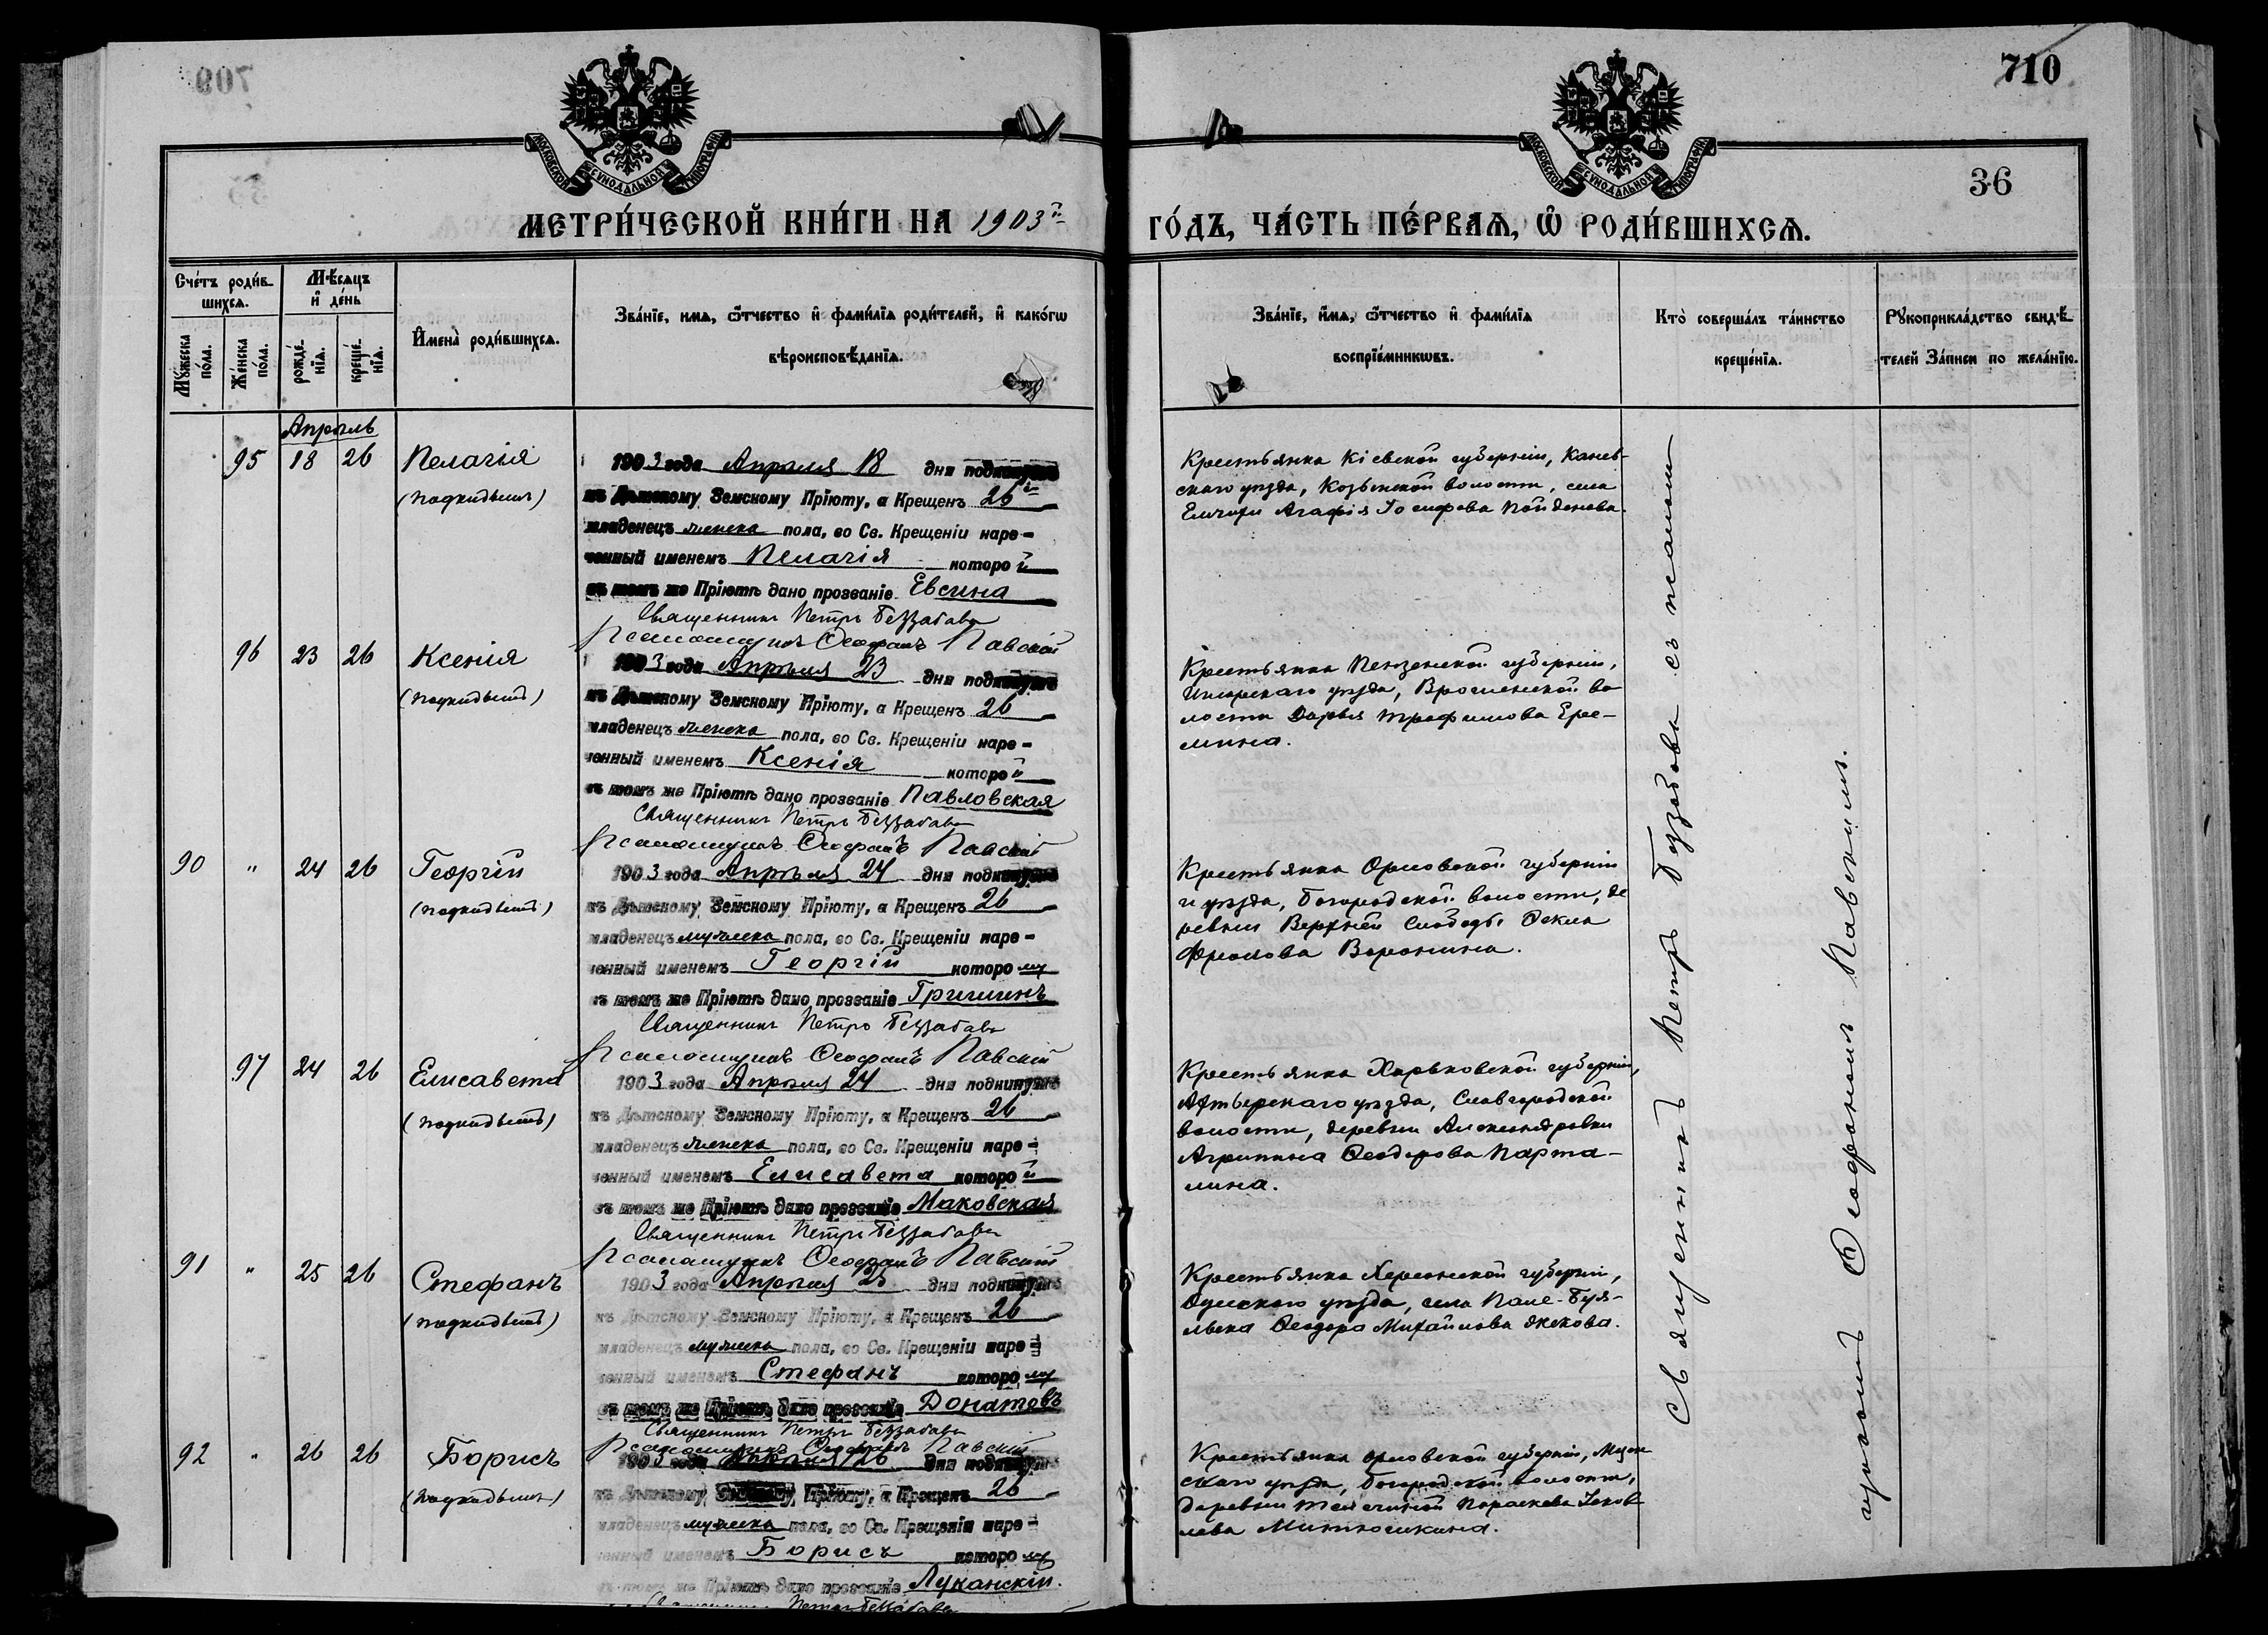 709
710
36
МОСКОВСКОЙ СѴНОДАЛЬНОЙ ТИПОГРАФІИ
МОСКОВСКОЙ СѴНОДАЛЬНОЙ ТИПОГРАФІИ
МЕТРИ́ЧЕСКОЙ КНИ́ГИ НА 1903й
ГО́ДЪ, ЧА́СТЬ ПЕ́РВАѦ, Ѽ РОДИ́ВШИХСѦ.
Сче́тъ роди́в-
шихсѧ.
Мѣ́сѧцъ
и҆ де́нь
Мꙋ́жеска
по́ла.
Же́нска
по́ла.
рожде́-
нїѧ.
креще́-
нїѧ.
И҆мена̀ роди́вшихсѧ.
Зва́нїе, имѧ, ѻ҆́тчество и҆ фами́лїѧ роди́телей, и҆ како́гѡ
вѣроисповѣ́данїѧ.
Зва́нїе, и҆́мѧ, ѻ҆́тчество и҆ фами́лїѧ
воспрїе́мникѡвъ.
Кто̀ соверша́лъ та́инство
креще́нїѧ.
Рꙋкоприкла́дство свидѣ́-
телей За́писи по жела́нїю.
Апрѣль
95 18 26 Пелагія
(подкидышъ)
1903 года Апрѣля 18 дня подкинутъ
къ Дѣтскому Земскому Пріюту, а Крещенъ 26го
младенецъ женска пола, во Св. Крещеніи наре-
ченный именемъ Пелагія которой
въ томъ же Пріютѣ дано прозваніе Евсина
Священникъ Петръ Беззабава
Псаломщикъ Ѳеофанъ Павскій
Крестьянка Кіевской губерніи, Канев-
скаго уѣзда, Козынской волости, села
Емчихи Агафія Іосифова
96 23 26 Ксенія
(подкидышъ)
1903 года Апрѣля 23 дня подкинутъ
къ Дѣтскому Земскому Пріюту, а Крещенъ 26
младенецъ женска пола, во Св. Крещеніи наре-
ченный именемъ Ксенія которой
въ томъ же Пріютѣ дано прозваніе Павловская
Священникъ Петръ Беззабава
Псаломщикъ Ѳеофанъ Павскій
Крестьянка Пензенской губерніи,
уѣзда, во
лости Дарья Трофимова Ере-
мина.
90 " 24 26 Георгій
(подкидышъ)
1903 года Апрѣля 24 дня подкинутъ
къ Дѣтскому Земскому Пріюту, а Крещенъ 26
младенецъ мужеска пола, во Св. Крещеніи наре-
ченный именемъ Георгій которому
въ томъ же Пріютѣ дано прозваніе Гришинъ
Священникъ Петръ Беззабава
Псаломщикъ Ѳеофанъ Павскій
Крестьянка Орловской губерніи
и уѣзда, Богородской волости, де
ревни Верхней Слободы Ѳекла
Фролова Воронина.
97 24 26 Елисавета
(подкидышъ)
1903 года Апрѣля 24 дня подкинутъ
къ Дѣтскому Земскому Пріюту, а Крещенъ 26
младенецъ женска пола, во Св. Крещеніи наре-
ченный именемъ Елисавета которой
въ томъ же Пріютѣ дано прозваніе Маковская
Священникъ Петръ Беззабава
Псаломщикъ Ѳеофанъ Павскій
Крестьянка Харьковской губерніи,
Ахтырскаго уѣзда, Славгородской
волости, деревни Александровки
Агрипина Ѳеодорова Парта-
лина.
91 " 25 26 Стефанъ
(подкидышъ)
1903 года Апрѣля 25 дня подкинутъ
къ Дѣтскому Земскому Пріюту, а Крещенъ 26
младенецъ мужеска пола, во Св. Крещеніи наре-
ченный именемъ Стефанъ которому
въ томъ же Пріютѣ дано прозваніе Донатовъ
Священникъ Петръ Беззабава
Псаломщикъ Ѳеофанъ Павскій
Крестьянка Херсонской губерніи,
Одесскаго уѣзда, села
Ѳеодора Михайлова
92 " 26 26 Борисъ
(подкидышъ)
1903 года Апрѣля 26 дня подкинутъ
къ Дѣтскому Земскому Пріюту, а Крещенъ 26
младенецъ мужеска пола, во Св. Крещеніи наре-
ченный именемъ Борисъ которому
въ томъ же Пріютѣ дано прозваніе Луканскій.
Священникъ Петръ Беззабава
Крестьянка Орловской губерніи, Мцен
скаго уѣзда, Богородской волости,
деревни Параскева Іаков
лева Митюшкина.
Священникъ Петръ Беззабава съ псалом
щикомъ Ѳеофаномъ Павскимъ.